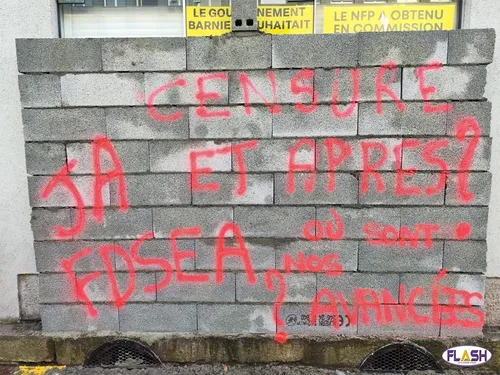 LE GOUVERNEMENT
BARNIER SOUHAITAIT
LE NFP A OBTENU
EN COMMISSION
CENSURE
ET APRES ?
JA
FDSEA
OÙ SONT
NOS
AVANCÉES ?
FLASH